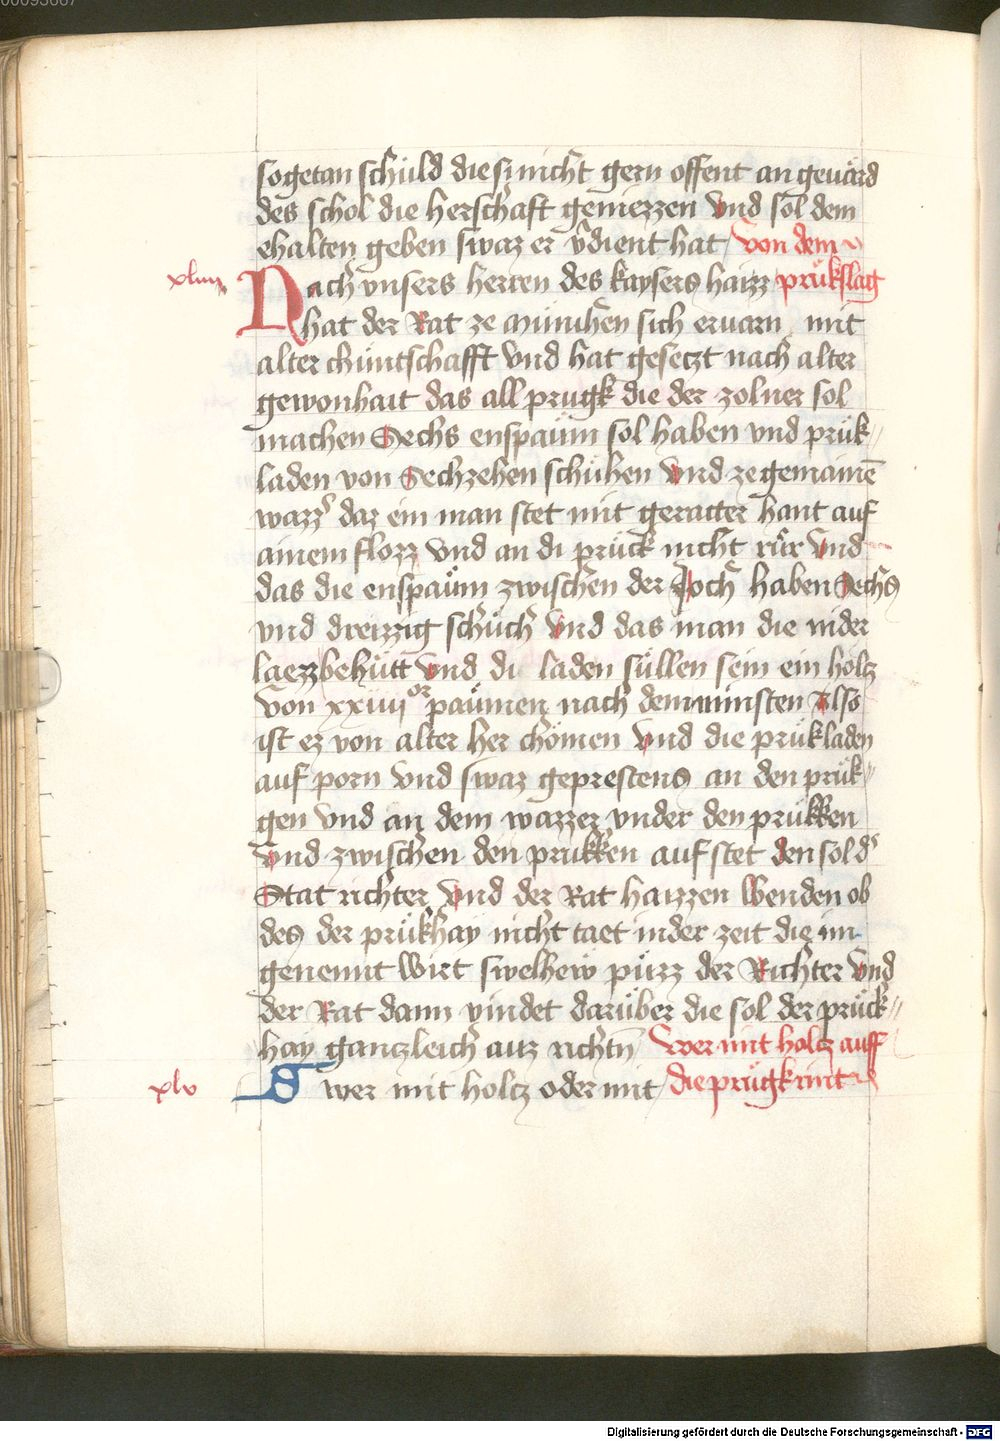 00093667
sogetan schuͤld die si nicht gern offent an geuaͤrd
des schol die herschaft geniezzen vnd sol dem
ehalten geben swaz er v̄dient hat von dem
xliiij Nach vnsers herren des kaysers haizz pruͤkslag
hat der Rat ze Muͤnichen sich eruarn mit
alter chuͤntschafft vnd hat gesetzt nach alter
gewonhait das all prugk die der zolner sol
machen Sechs enspaͤum sol haben vnd pruͤk//
laden von Sechzehen schuͤhen vnd ze gemainē
wazz̄ daz ein man stet mit geracter hant auf
ainem flozz vnd an di pruͤck nicht ruͤr vnd
das die enspaͤum zwischen der Joch haben Sechs
vnd dreizzig schuͤch vnd das man die nider
laezz behuͤtt vnd di laden suͤllen sein ein holtz
von xxiiii or paͤumen nach dem minsten Also
ist ez von alter her choͤmen vnd die pruͤkladen
auf porn vnd swaz geprestens an den pruͤk//
gen vnd an dem wazzer vnder den pruͤkken
vnd zwischen den pruͤkken auf stet den sol d̄
Stat richter vnd der Rat haizzen wenden ob
des der pruͤkhay nicht taet in der zeit die im
genennt wirt swelhew puͤzz der Richter vnd
der Rat dann vindet daruͤber die sol der pruͤck//
hay gantzleich auz richtn̄ wer mit holtz auff
xlv Swer mit holtz oder mit die pruͤgk rint
Digitalisierung gefördert durch die Deutsche Forschungsgemeinschaft - DFG